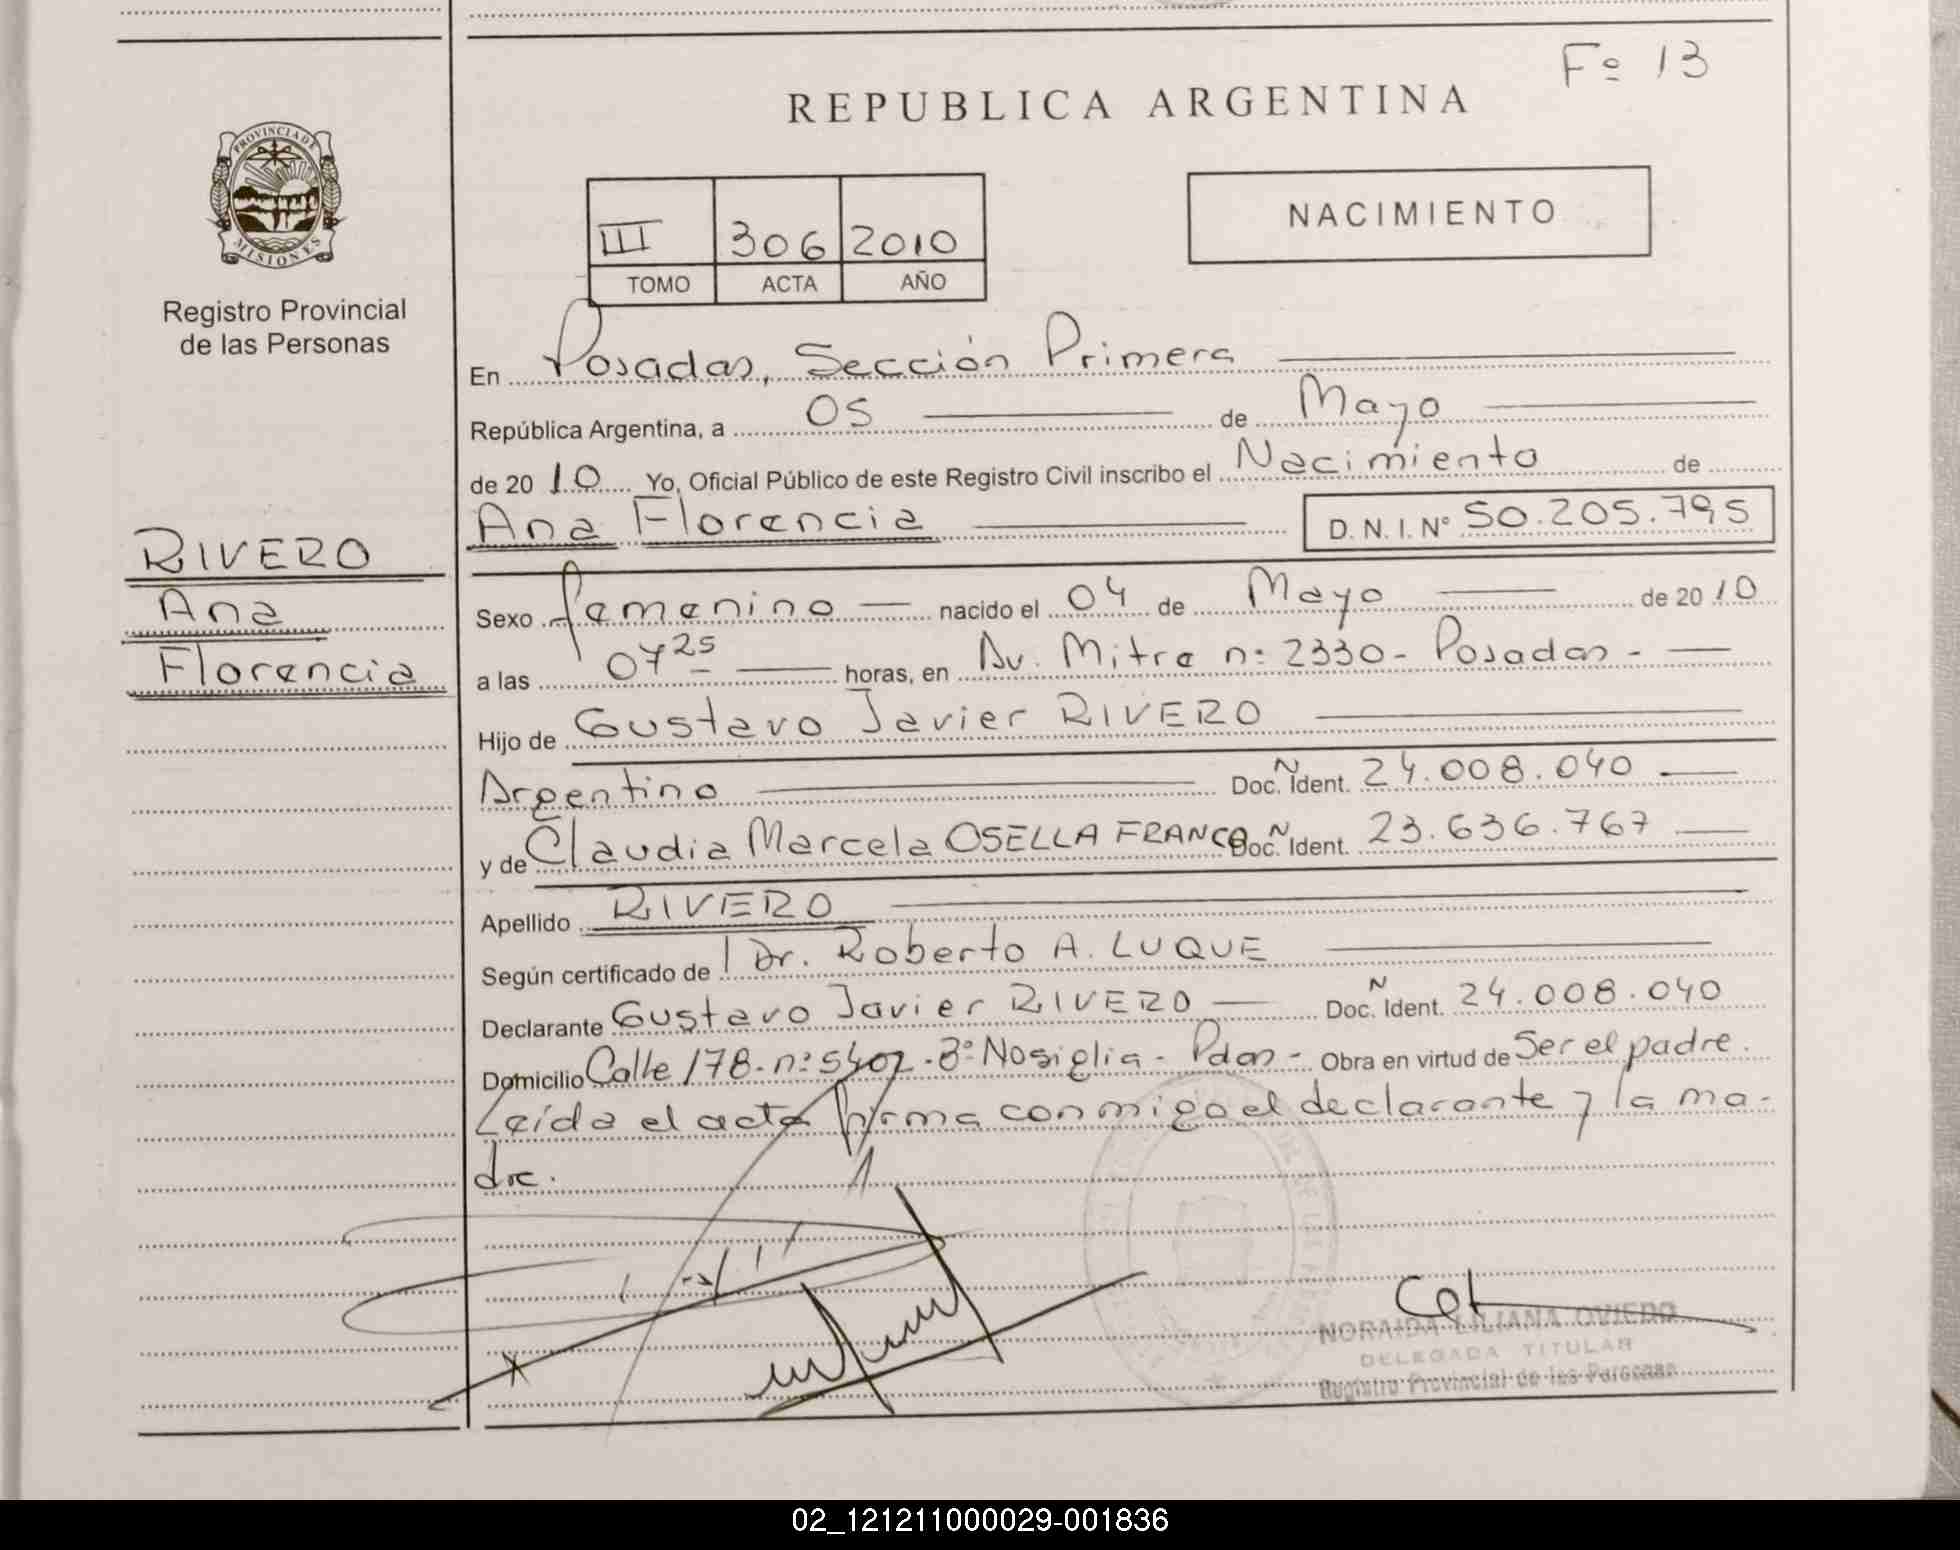 Fº 13
REPUBLICA ARGENTINA
PROVINCIA DE
MISIONES
Registro Provincial
de las Personas
III 306 2010
TOMO ACTA AÑO
NACIMIENTO
En Posadas, Sección Primera
República Argentina, a 05 de Mayo
de 2010 Yo, Oficial Público de este Registro Civil inscribo el Nacimiento de
Ana Florencia D. N. I. Nº 50.205.795
RIVERO
Ana
Florencia
Sexo femenino nacido el 04 de Mayo de 2010
a las 07 25 horas, en Av. Mitre nº 2330 - Posadas -
Hijo de Gustavo Javier RIVERO
Argentino Doc. Ñ Ident. 24.008.040
y de Claudia Marcela OSELLA FRANCO Doc. Ñ Ident. 23.636.767
Apellido RIVERO
Según certificado de Dr. Roberto A. LUQUE
Declarante Gustavo Javier RIVERO Doc. Ñ Ident. 24.008.040
Domicilio Calle 178 - nº 5402 - Bº Nosiglia - Pdas - Obra en virtud de Ser el padre.
Leída el acta firma conmigo el declarante y la ma-
dre.
NORAIDA LILIANA OVIEDO
DELEGADA TITULAR
Registro Provincial de las Personas
02_121211000029-001836